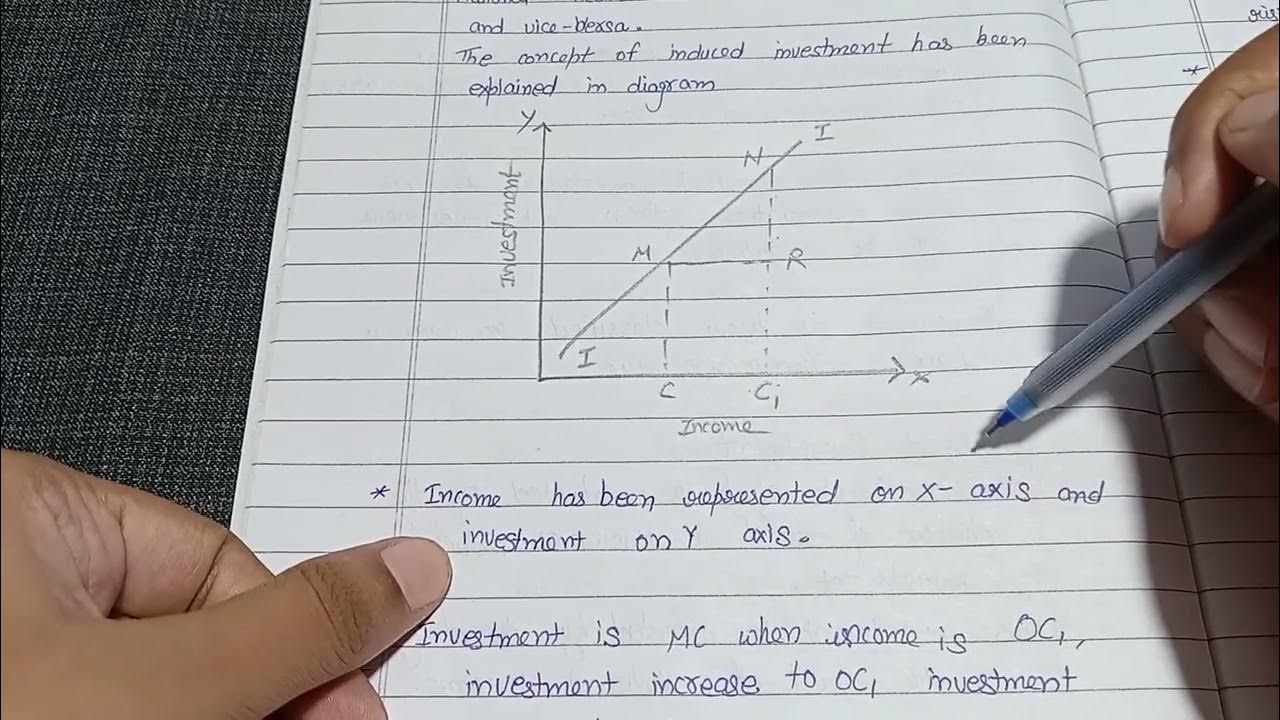 and vice-versa.
The concept of induced investment has been
explained in diagram
Y
I
N
Investment
M
R
I
X
C
C1
Income
* Income has been represented on X- axis and
investment on Y axis.
*
Investment is MC when income is OC1,
investment increase to OC1 investment